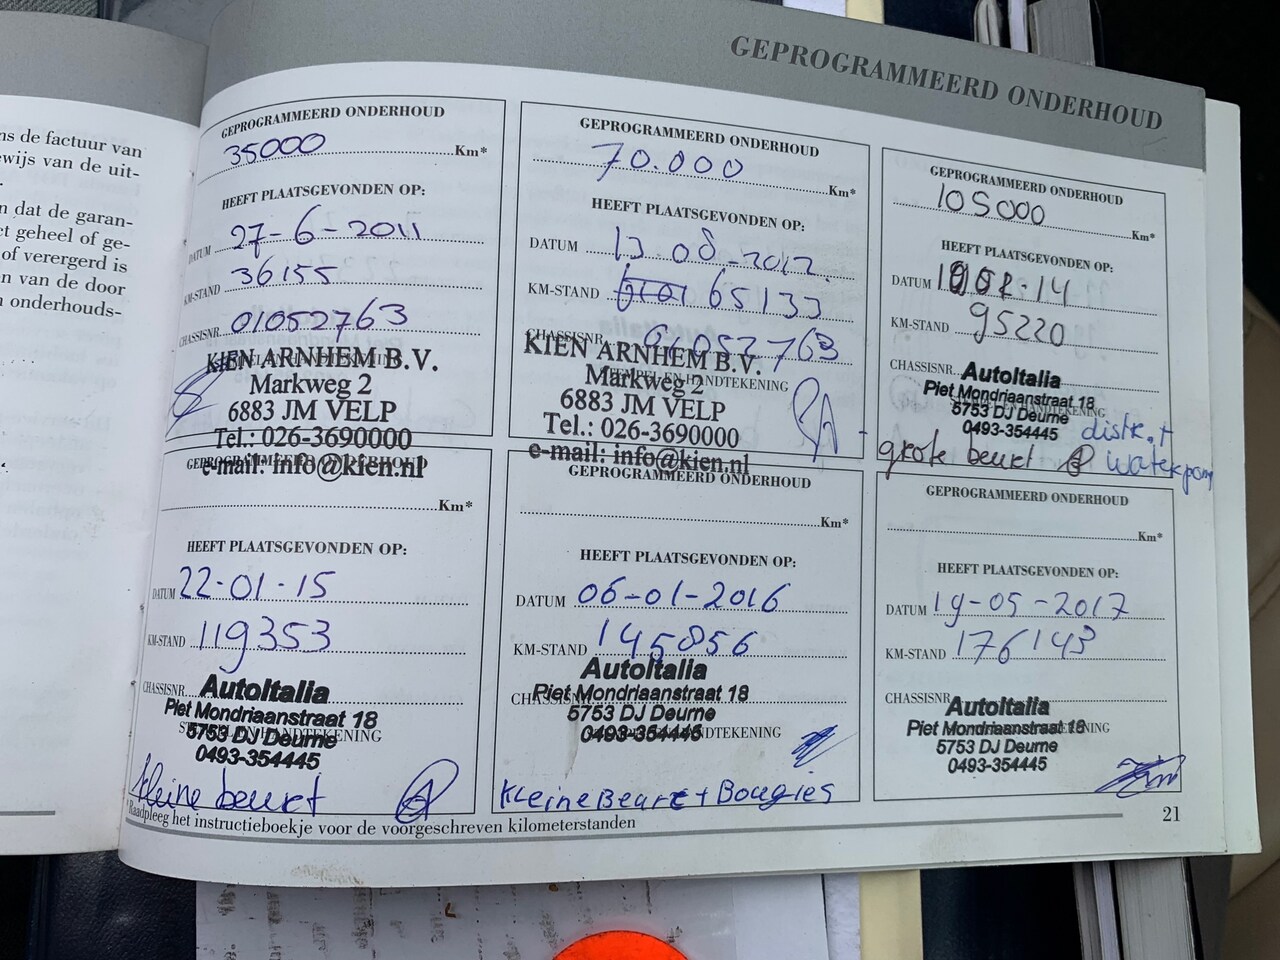 ns de factuur van
ewijs van de uit-
n dat de garan-
ct geheel of ge-
of verergerd is
en van de door
n onderhouds-
GEPROGRAMMEERD ONDERHOUD
GEPROGRAMMEERD ONDERHOUD
35000 Km*
HEEFT PLAATSGEVONDEN OP:
DATUM 27-6-2011
KM-STAND 36155
CHASSISNR. 01052763
KIEN ARNHEM B.V.
Markweg 2
6883 JM VELP
Tel.: 026-3690000
e-mail: info@kien.nl
GEPROGRAMMEERD ONDERHOUD
70.000 Km*
HEEFT PLAATSGEVONDEN OP:
DATUM 13-08-2012
KM-STAND 65133
CHASSISNR. 01052763
KIEN ARNHEM B.V.
STEMPEL EN HANDTEKENING
Markweg 2
6883 JM VELP
Tel.: 026-3690000
e-mail: info@kien.nl
GEPROGRAMMEERD ONDERHOUD
105000 Km*
HEEFT PLAATSGEVONDEN OP:
DATUM
KM-STAND 95220
CHASSISNR.
AutoItalia
Piet Mondriaanstraat 18
5753 DJ Deurne
0493-354445
grote beurt distr. + waterpom
GEPROGRAMMEERD ONDERHOUD
Km*
HEEFT PLAATSGEVONDEN OP:
DATUM 22-01-15
KM-STAND 119353
CHASSISNR.
AutoItalia
Piet Mondriaanstraat 18
5753 DJ Deurne
0493-354445
kleine beurt
GEPROGRAMMEERD ONDERHOUD
Km*
HEEFT PLAATSGEVONDEN OP:
DATUM 06-01-2016
KM-STAND 145856
CHASSISNR.
AutoItalia
Piet Mondriaanstraat 18
5753 DJ Deurne
0493-354445
Kleine Beurt + Bougies
GEPROGRAMMEERD ONDERHOUD
Km*
HEEFT PLAATSGEVONDEN OP:
DATUM 19-05-2017
KM-STAND 176143
CHASSISNR.
AutoItalia
Piet Mondriaanstraat 18
5753 DJ Deurne
0493-354445
*Raadpleeg het instructieboekje voor de voorgeschreven kilometerstanden
21